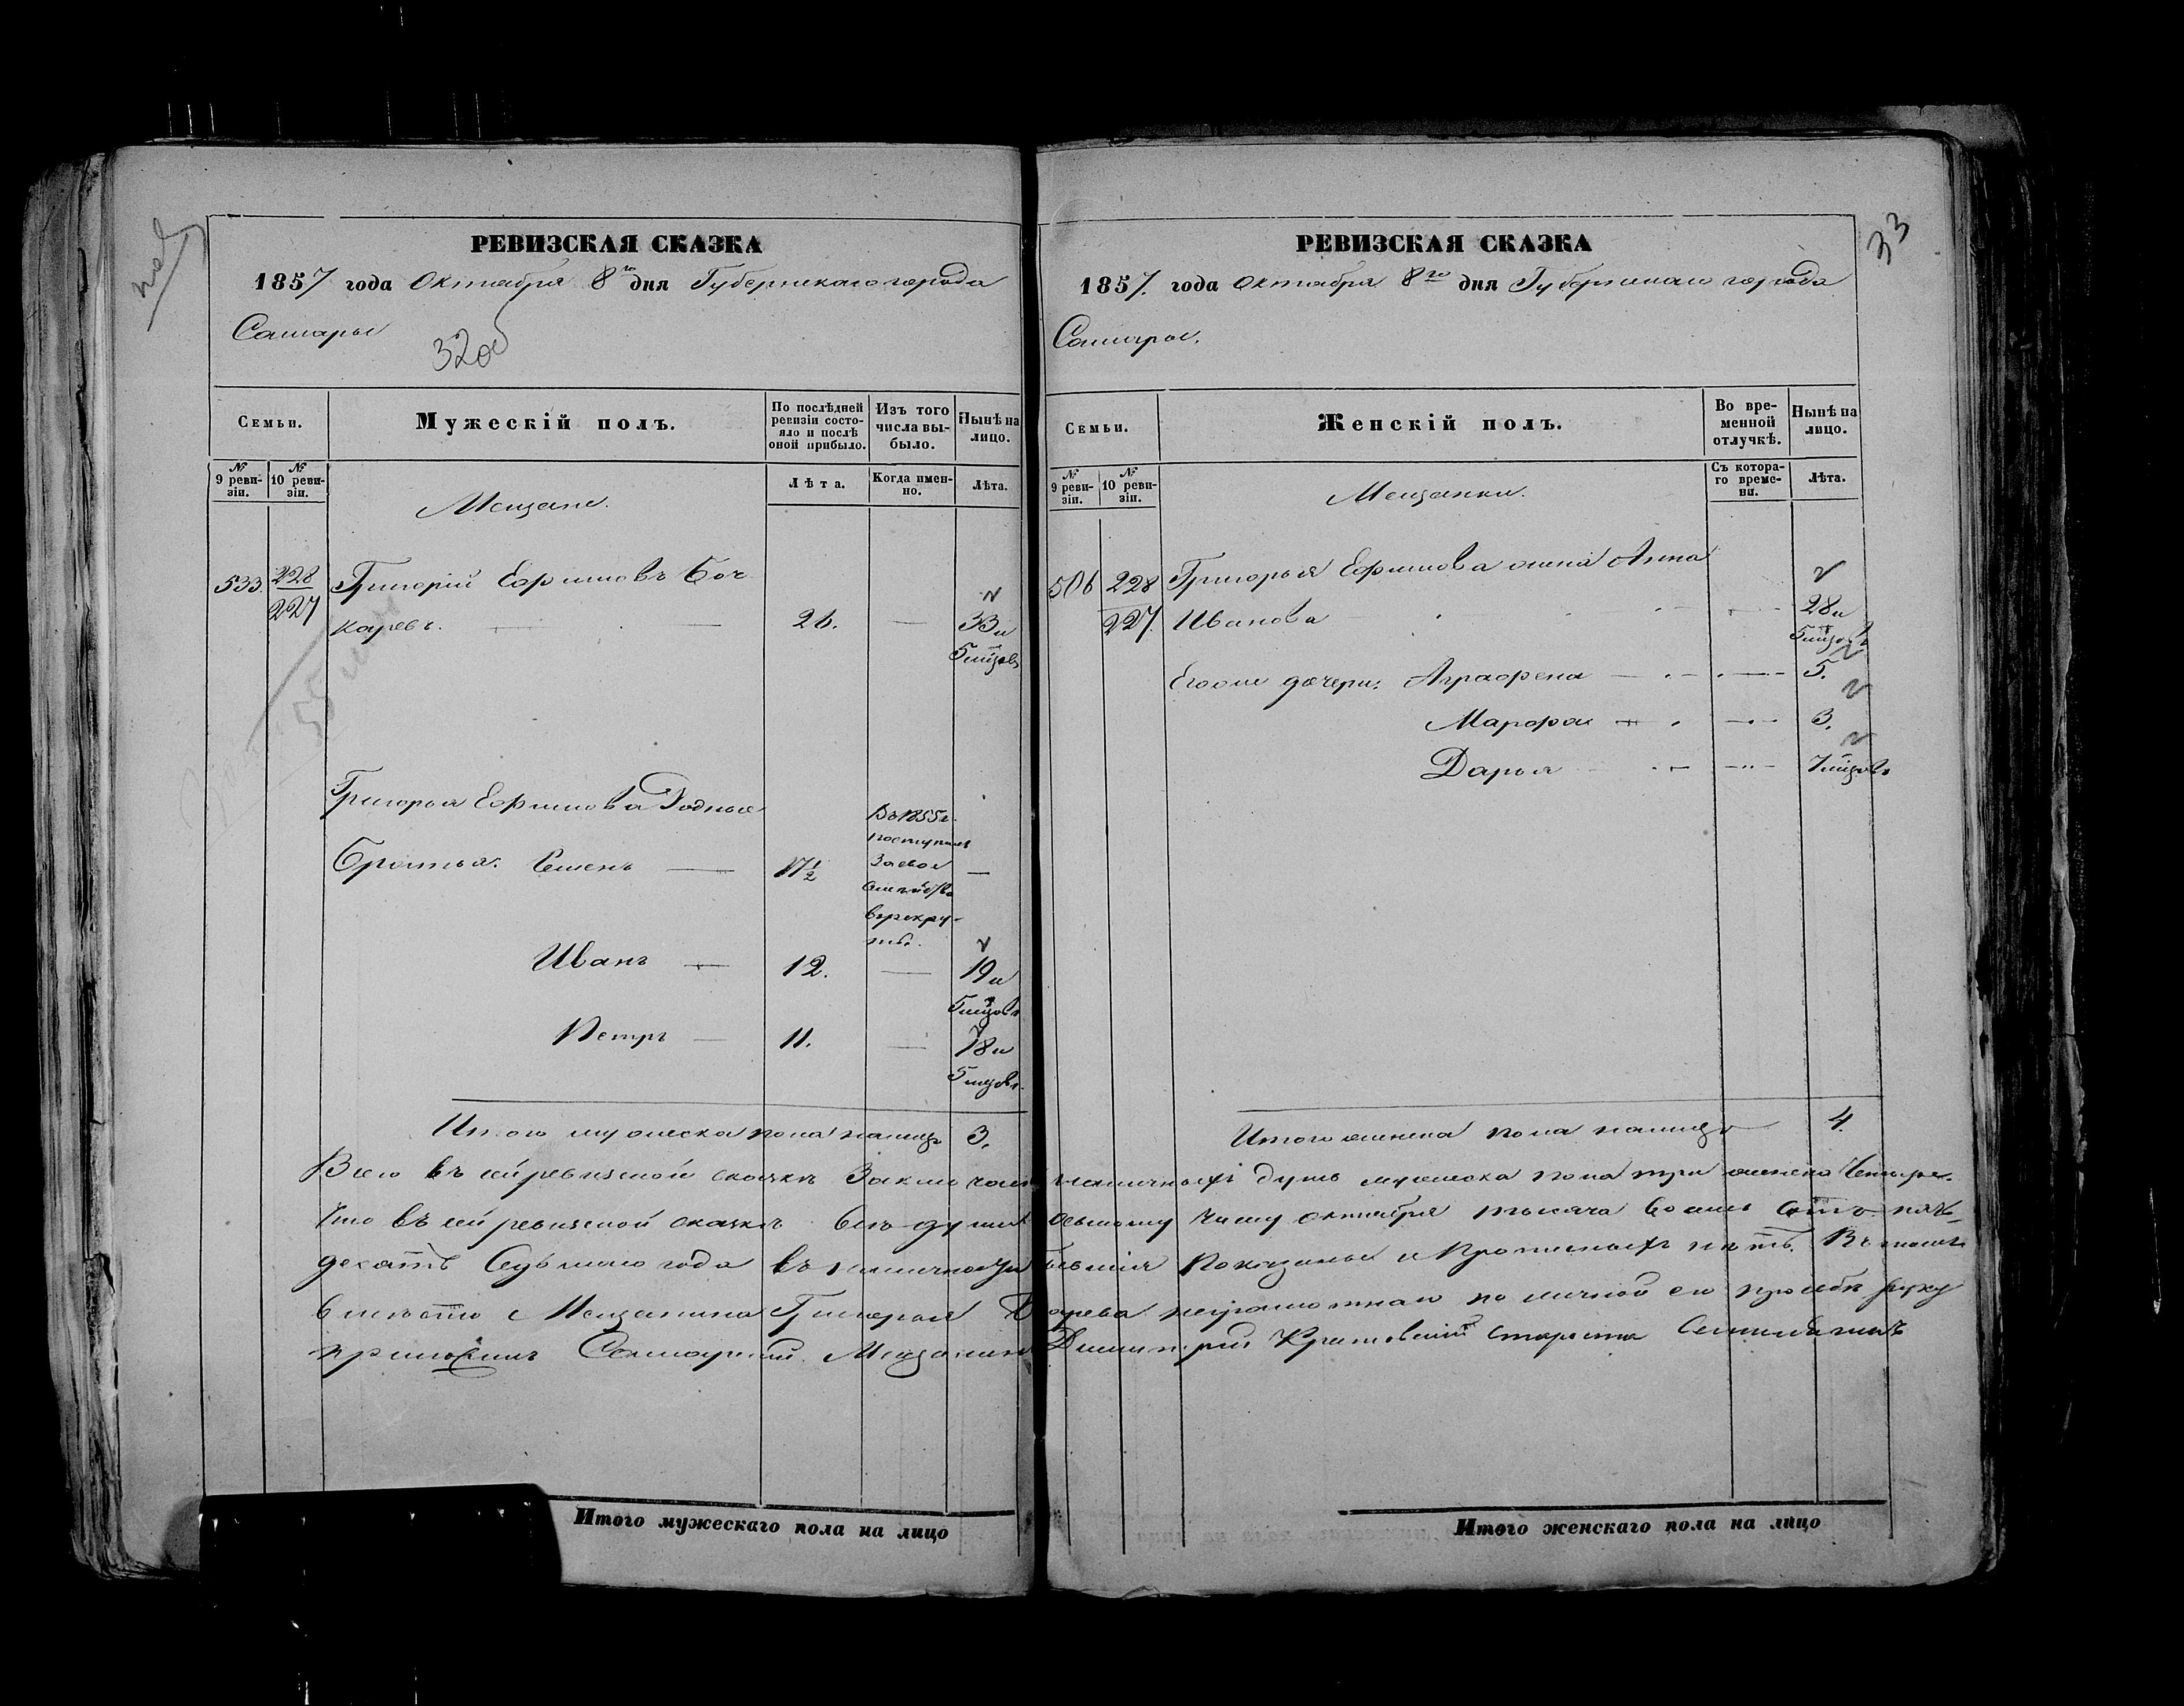 РЕВИЗСКАЯ СКАЗКА
1857 года Октября 8го дня Губернскаго города
Самары
32об
Семьи.
Мужескій полъ.
По послѣдней ревизіи состояло и послѣ оной прибыло.
Изъ того числа выбыло.
Нынѣ на лицо.
№ 9 ревизіи.
№ 10 ревизіи.
Лѣта.
Когда именно.
Лѣта.
Мещане.
533. 228/227 Григорій Ефимовъ Боч
каревъ. — 26. — 33 и
5 мѣцовъ
Григорья Ефимова Родные
Братья: Семенъ — 17½ —
Въ 1855 г.
поступилъ
За свое
въ рекру-
ты.
Иванъ — 12. — 19 и
5 мѣцовъ
Петръ — 11. — 18 и
5 мѣцовъ
Итого мужеска пола налицо 3.
Итого мужескаго пола на лицо
РЕВИЗСКАЯ СКАЗКА
33
1857. года Октября 8го дня Губернскаго города
Самары.
Семьи.
Женскій полъ.
Во временной отлучкѣ.
Нынѣ на лицо.
№ 9 ревизіи.
№ 10 ревизіи.
Съ котораго времени.
Лѣта.
Мещанки.
506 228/227. Григорья Ефимова жена Анна
Ивановна — 28 и
5 мѣцовъ
Его же дочери: Аграфена — 5.
Марфа — 3.
Дарья — 7 мѣцовъ
Итого женска пола налицо 4.
Всего въ сей ревизской сказкѣ Заключает наличныхъ душъ мужеска пола три женска Четыре.
Что въ сей ревизской сказкѣ всѣ души осьмому числу октября тысяча восемь сотъ пять-
десятъ Седьмаго года въ наличности бывшія показаны и Прописныхъ нѣтъ. Въ томъ
вмѣсто Мещанина Григорья неграмотнаго по личной его прозьбѣ руку
приложилъ Самарскій Мещанинъ Дмитрій Староста
Итого женскаго пола на лицо